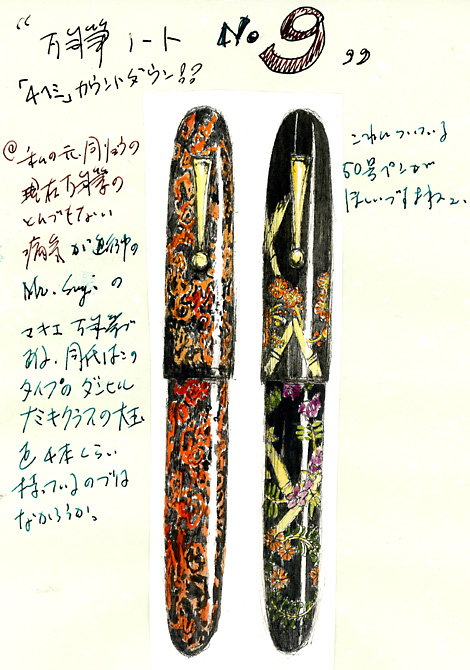 “万年筆ノート No. 9”
「4ヘミ」カウントダウン!??
@私の元同りょうの
現在万年筆の
とんでもない
病気が進行中の
Mr. Sugi の
マキエ万年筆で
ある、同氏はこの
タイプのダンヒル
ナミキクラスの大玉
を4本くらい
持っているのでは
なかろうか。
これについている
50号ペンが
ほしいですねェ。